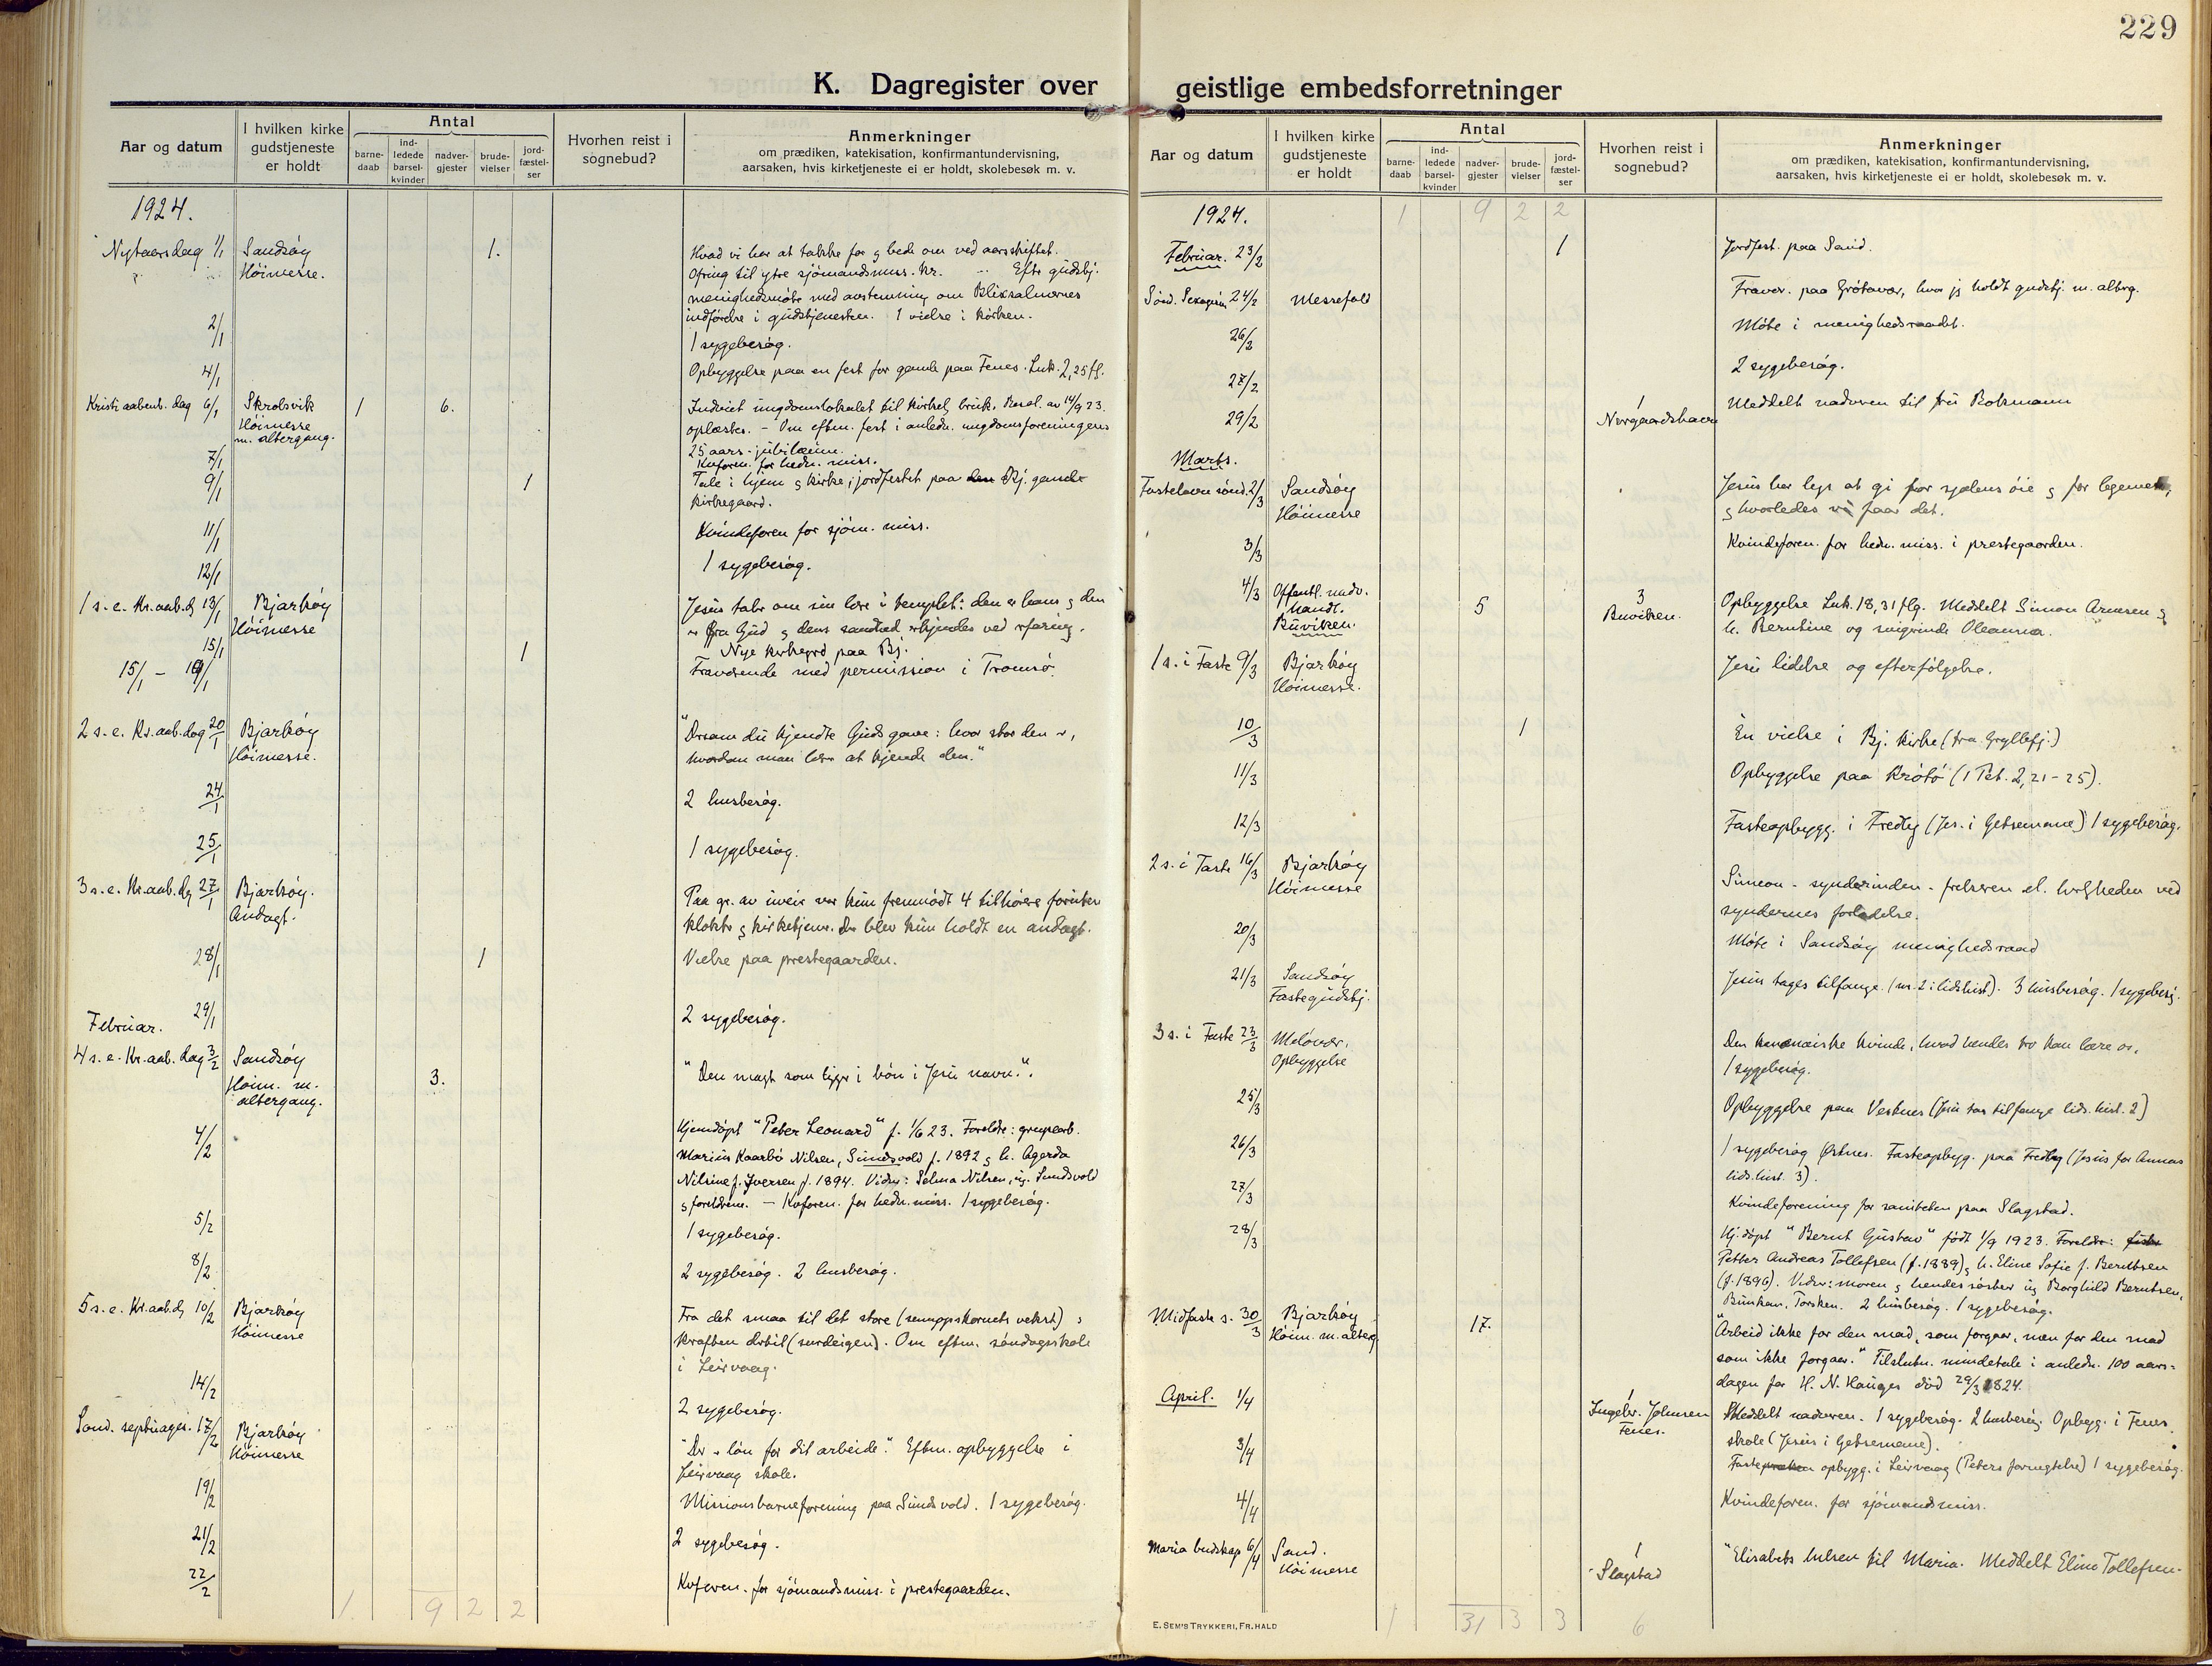 229
K. Dagregister over
geistlige embedsforretninger
Aar og datum
I hvilken kirke gudstjeneste er holdt
Antal
barne-daab
ind-ledede barsel-kvinder
nadver-gjester
brude-vielser
jord-fæstel-ser
Hvorhen reist i sognebud?
Anmerkninger
om prædiken, katekisation, konfirmantundervisning,
aarsaken, hvis kirketjeneste ei er holdt, skolebesøk m. v.
1924.
Nytaarsdag 1/1 Sandsöy 1. Hvad vi har at takke for og bede om ved aarsskiftet.
Höimesse. Ofring til ytre sjömandsmiss. kr. -- Efter gudstj.
menighedsmöte med avstemning om Blixsalmernes
indförelse i gudstjenesten. 1 vielse i kirken.
2/1 1 sygebesög.
4/1 Opbyggelse paa en fest for gamle paa Fenes. Luk. 2,25 fl.
Kristi aabenb. dag 6/1 Skrolsvik 1 6. Indviet ungdomslokalet til kirkel. bruk. Resol. av 14/9 23.
Höimesse m. altergang. oplæstes. - Om eftm. fest i anledn. ungdomsforeningens
25 aars-jubilæum.
7/1 Kvforen. for hedn. miss.
9/1 1 Tale i hjem og kirke, jordfestet paa den Bj. gamle
kirkegaard.
11/1 Kvindeforen for sjöm. miss.
12/1 1 sygebesög.
1 s. e. Kr. aab. dg 13/1 Bjarköy Jesus taler om sin lære i templet: den er hans og den
Höimesse er fra Gud og dens sandhed erkjendes ved erfaring.
15/1 1 Nye kirkegrd paa Bj.
15/1 - 19/1 Fraværende med permission i Tromsö.
2 s. e. Kr. aab. dag 20/1 Bjarköy "Dersom du kjendte Guds gave: hvor stor den er,
Höimesse. hvordan man lærer at kjende den."
24/1 2 husbesög.
25/1 1 sygebesög.
3 s. e. Kr. aab. dg 27/1 Bjarköy. Paa gr. av uveir var kun fremmödt 4 tilhörere foruten
Andagt. klokker og kirketjener. Der blev kun holdt en andagt.
28/1 1 Vielse paa prestegaarden.
29/1 2 sygebesög.
Februar.
4 s. e. Kr. aab. dag 3/2 Sandsöy
Höim. m. altergang. 3. "Den magt som ligger i bön i Jesu navn."
4/2 Hjemdöpt "Peter Leonard" f. 1/6 23. Foreldre: grubearb.
Marius Kaarbö Nilsen, Sundsvold f. 1892 og h. Agarda
Nilsine f. Iversen f. 1894. Vidner: Selma Nilsen, ug. Sundsvold
og foreldrene. - Kvforen. for hedn. miss. 1 sygebesög.
5/2 1 sygebesög.
8/2 2 sygebesög. 2 husbesög.
5 s. e. Kr. aab. dg 10/2 Bjarköy Fra det smaa til det store (sennepskornets vekst) og
Höimesse kraften dertil (surdeigen). Om eftm. söndagsskole
i Leirvaag.
14/2 2 sygebesög.
Sönd. septuages. 17/2 Bjarköy "Der er lön for dit arbeide." Eftm. opbyggelse i
Höimesse Leirvaag skole.
19/2 Missionsbarneforening paa Sundsvold. 1 sygebesög.
21/2 2 sygebesög.
22/2 Kvforen. for sjömandsmiss. i prestegaarden.
1. 9 2 2
Aar og datum
I hvilken kirke gudstjeneste er holdt
Antal
barne-daab
ind-ledede barsel-kvinder
nadver-gjester
brude-vielser
jord-fæstel-ser
Hvorhen reist i sognebud?
Anmerkninger
om prædiken, katekisation, konfirmantundervisning,
aarsaken, hvis kirketjeneste ei er holdt, skolebesøk m. v.
1924. 1 9 2 2
Februar. 23/2 1 Jordfest. paa Sand.
Sönd. Sexagesim 24/2 Messefald Fravær. paa Grötavær, hvor jeg holdt gudstj. m. alterg.
26/2 Möte i menighedsraadet.
27/2 2 sygebesög.
29/2 1 Norgaardshavn Meddelt nadveren til fru Rokmann
Marts.
Fastelavns sönd. 2/3 Sandsöy Jesus har lys at gi for sjælens öie og for legemets,
Höimesse og hvorledes vi faar det.
3/3 Kvindeforen. for hedn. miss. i prestegaarden.
4/3 Offentl. nadv. handl. Buviken. 5 3 Buviken. Opbyggelse Luk. 18,31 flg. Meddelt Simon Arnesen og
h. Berntine og svigerinde Oleanna.
1 s. i Faste 9/3 Bjarköy Jesu lidelse og efterfölgelse.
Höimesse.
10/3 1 En vielse i Bj. kirke (fra Gryllefj.)
11/3 Opbyggelse paa Krötö (1 Pet. 2,21-25).
12/3 Fasteopbygg. i Fredly (Jes. i Getsemane) 1 sygebesög.
2 s. i Faste 16/3 Bjarköy Simeon - synderinden - frelseren el. saligheden ved
Höimesse syndernes forladelse.
20/3 Möte i Sandsöy menighedsraad
21/3 Sandsöy Jesus tages tilfange. (nr. 2 i lidshist). 3 husbesög. 1 sygebesög.
Fastegudstj.
3 s. i Faste 23/3 Melövær. Den kananæiske kvinde, hvad hendes tro kan lære os.
Opbyggelse 1 sygebesög.
25/3 Opbyggelse paa Vesknes (Jesu tas tilfange lids. hist. 2)
26/3 1 sygebesög Östnes. Fasteopbyg. paa Fredly (Jesus for Annas
lids. hist. 3).
27/3 Kvindeforening for saniteten paa Slagstad.
28/3 Hj. döpt "Bernt Gustav" födt 1/9 1923. Foreldre: fisker
Petter Andreas Tollefsen (f. 1889) og h. Eline Sofie f. Berntsen
(f. 1896). Vidner: moren og hendes söster ug Borghild Berntsen,
Bunkan, Torsken. 2 husbesög. 1 sygebesög.
Midfaste s. 30/3 Bjarköy 17. "Arbeid ikke for den mad, som forgaar, men for den mad
Höim. m. alterg som ikke forgaar." Tilslutn. mindetale i anledn. 100 aars-
dagen for H. N. Hauges död 29/3 1824.
April. 1/4 1 Ingebr. Johnsen Fenes. Meddelt nadveren. 1 sygebesög. 2 husbesög. Opbyg. i Fenes
skole (Jesus i Getsemane).
3/4 Fastepræken opbygg. i Leirvaag (Peters fornegtelse) 1 sygebesög.
4/4 Kvindeforen. for sjömandsmiss.
Maria budskap 6/4 Sand. Höimesse 1 Slagstad "Elisabets hilsen til Maria. Meddelt Eline Tollefsen.
1 31 3 3 6
E. SEM'S TRYKKERI, FR.HALD